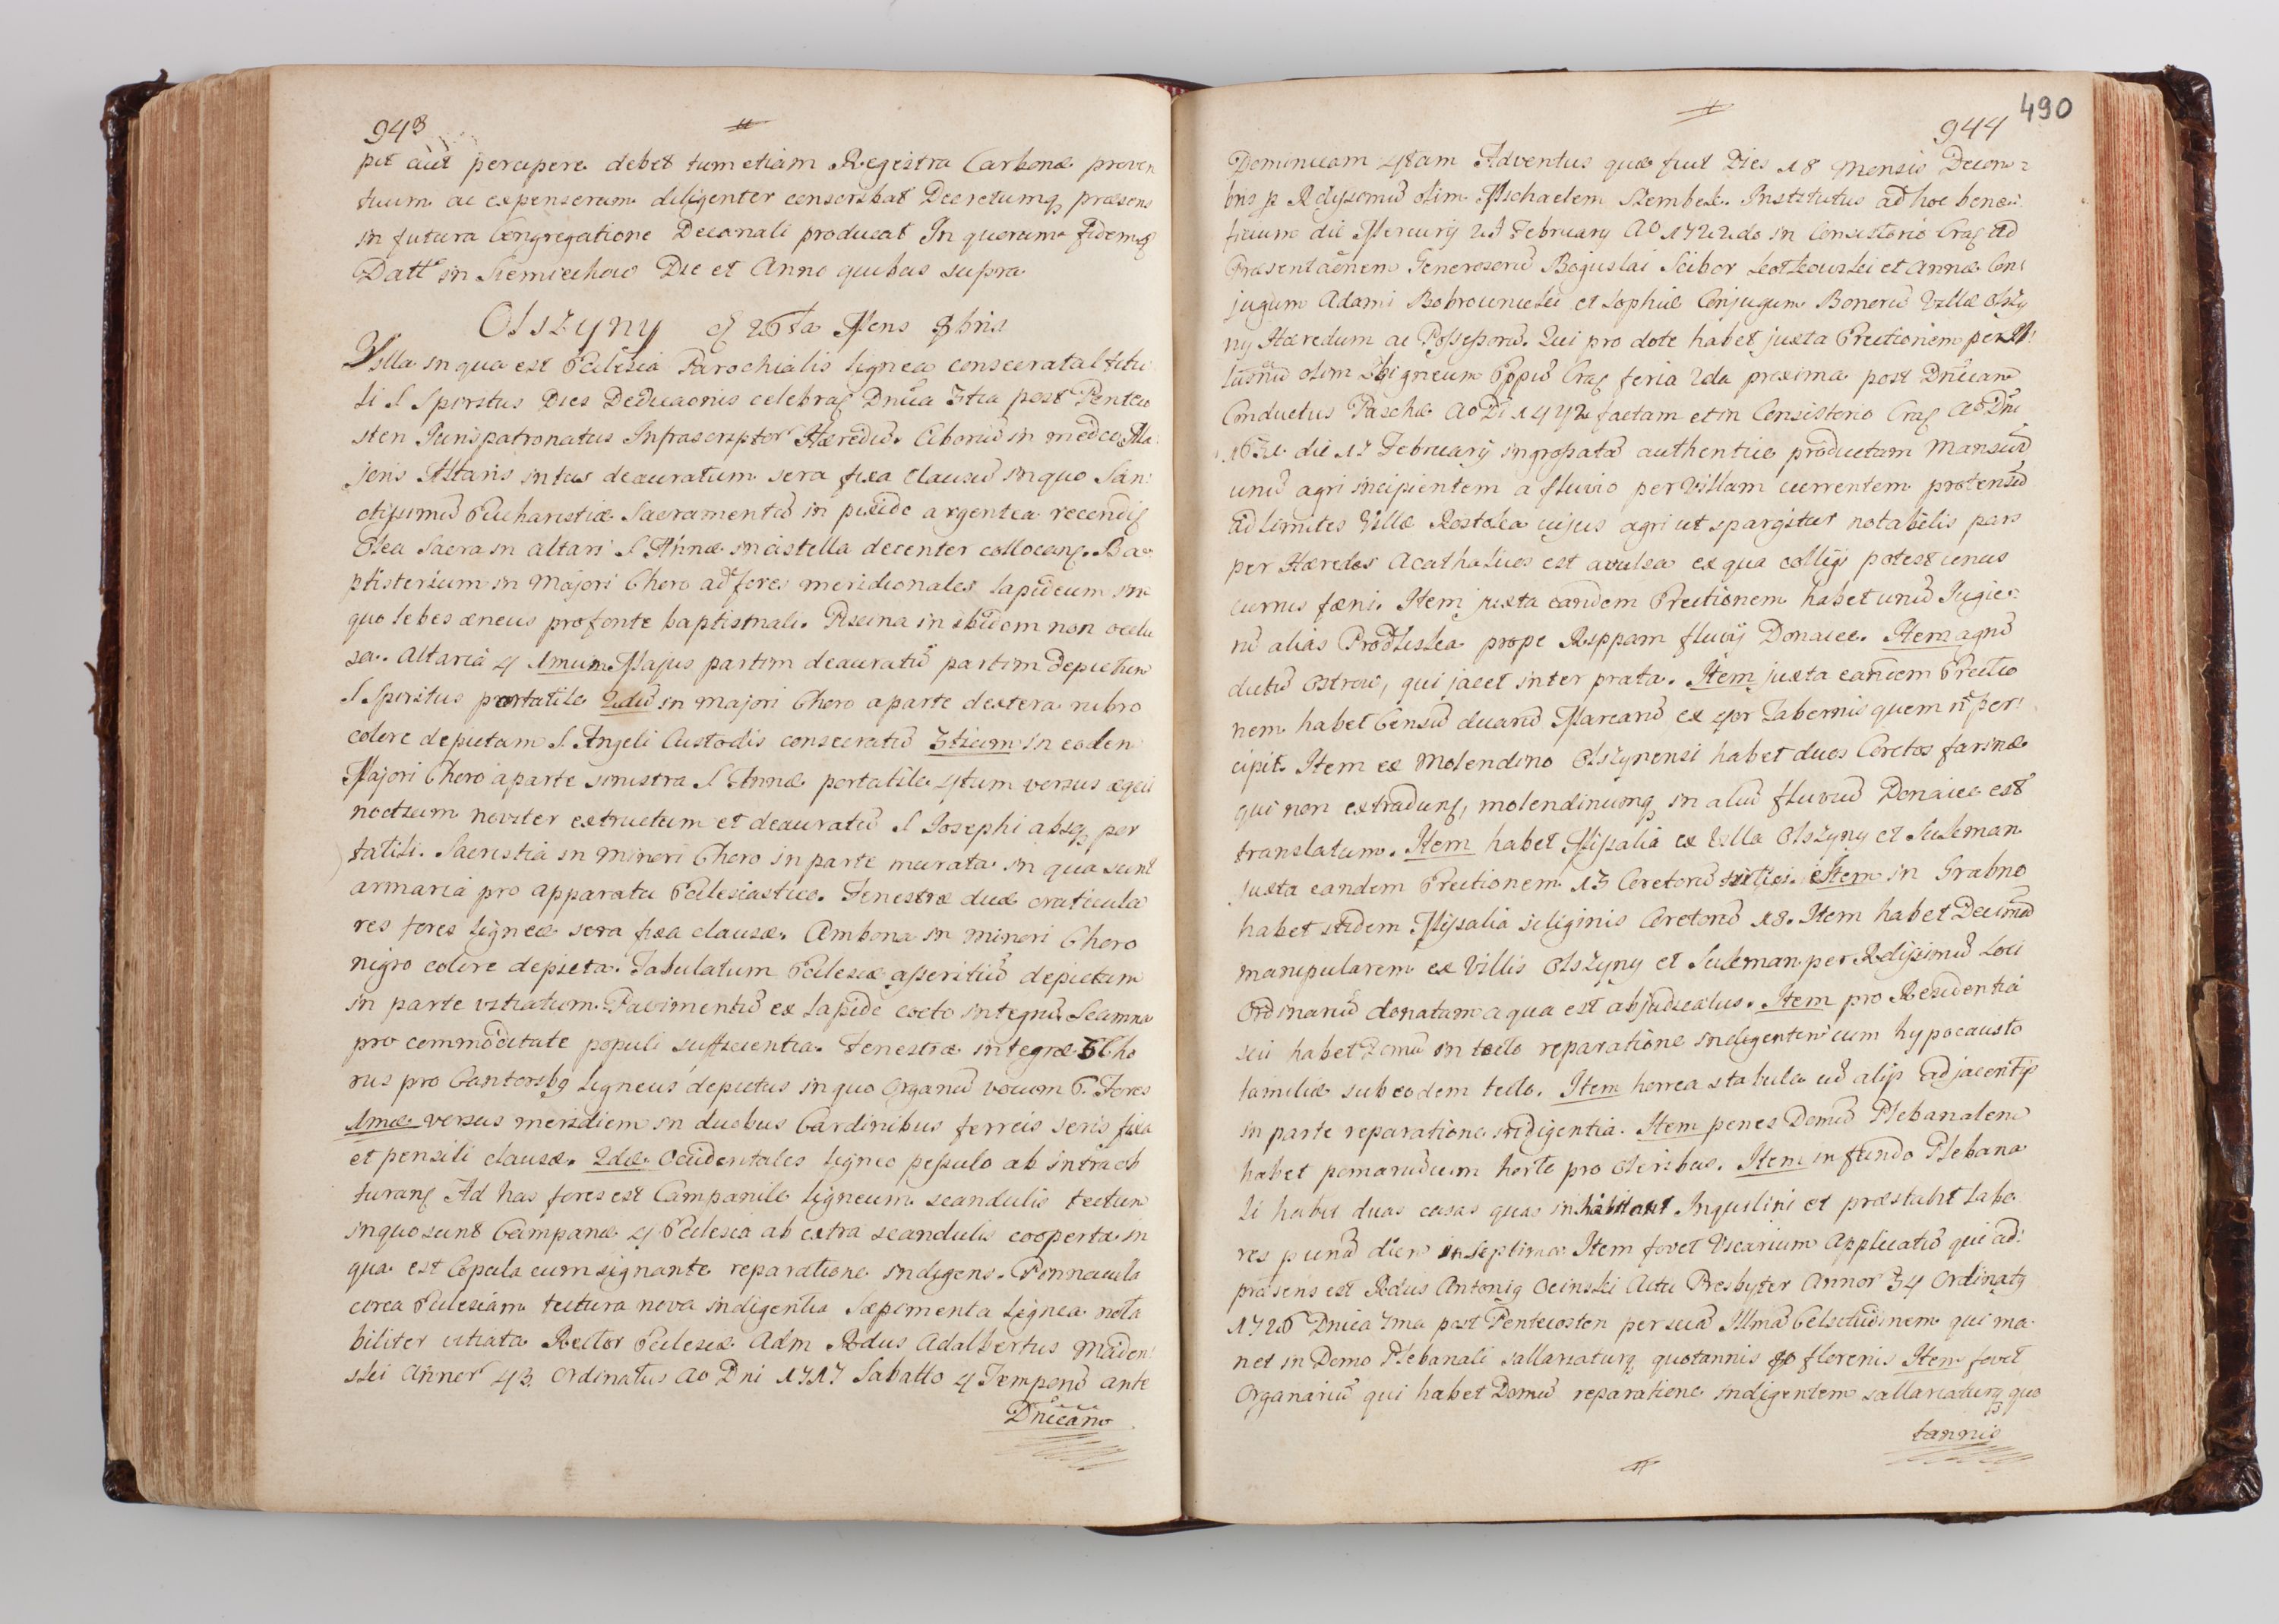 943
pit aut percipere debet tum etiam Regestra Carbonæ proven
tuum ac expensarum diligenter conscribat Decretumq præsens
in futura Congregatione Decanali producat In quorum fidem
Datt in Siemiechow Die et Anno quibus supra
Olszyny 26ta Mens 8bris
Villa in qua est Ecclesia Parochialis lignea consecrata titu
li S Spiritus Dies Dedicaonis celebra Dnica 3tia post Penteco
sten Jurispatronatus Infrascriptor Hæredum. Ciborium in medio Ma
joris Altaris intus deauratum sera fixa clausum in quo San
ctissimum Eucharistiæ Sacramentum in pixide argentea recendi
Olea Sacra in altari S Annæ in cistella decenter collocan. Ba
ptisterium in Majori Choro ad fores meridionales lapideum in
quo lebes æneus pro fonte baptismali. Piscina inibidem non occlu
sa. Altaria 4 1mum Majus partim deauratum partim depictum
S Spiritus portatile 2dum in majori Choro a parte dextera rubro
colore depictam S. Angeli Custodis consecratum 3tium in eodem
Majori Choro a parte sinistra S Annæ portatile 4tum versus æqui
noctium noviter extructum et deauratum S Josephi absq por
tatili. Sacristia in minori Choro in parte murata in qua sunt
armaria pro apparatu Ecclesiastico. Fenestræ duæ craticula
res fores ligneæ sera fixa clausæ. Ambona in minori Choro
nigro colore depicta. Tabulatum Ecclesiæ asseritium depictum
in parte vitiatum. Pavimentum ex lapide cocto integrum Scamna
pro commoditate populi sufficientia. Fenestræ integræ 5 Cho
rus pro Cantoribq ligneus depictus in quo Organum vocum 6. Fores
1mæ versus meridiem in duobus Cardinibus ferreis seris fixa
et pensili clausæ. 2dæ Occidentales ligneo pessulo ab intra ob
turan Ad has fores est Campanile ligneum scandulis tectum
in quo sunt Campanæ 4 Ecclesia ab extra scandulis cooperta in
qua est Copula cum signante reparatione indigens. Pinnacula
circa Ecclesiam tectura nova indigentia Sæpimenta lignea nota
biliter vitiata Rector Ecclesiæ Adm Rdus Adalbertus Maden
ski Annor 43. Ordinatus Ao Dni 1717 Sabatto 4 Temporum ante
Dnicam
490
944
Dominicam 4tam Adventus quæ fuit Dies 18 Mensis Decem
bris p Rdissimum olim Michaelem Szembek. Institutus ad hoc bene
ficium die Mercurij 25 February Ao 1722do in Consistorio Crac Ad
Præsentaonem Generosorum Boguslai Scibor Kotkowski et Annæ Con
jugum Adami Bobrownicki et Sophiæ Conjugum Bonorum Villæ Olszy
ny Hæredum ac Possessorum. Qui pro dote habet juxta Erectionem per Il
lusmum olim Zbigneum Eppum Crac feria 2da proxima post Dnicam
Conductus Paschæ Ao Di 1442 factam et in Consistorio Crac Ao Dni
die 17 February ingrossatam authentice productam Mansum
unum agri incipientem a fluvio per Villam currentem protensum
ad limites Villæ Rostoka cujus agri ut spargitur notabilis pars
per Hæredes Acatholicos est avulsa ex qua colligi potest unus
currus fæni. Item juxta eandem Erectionem habet unum Juge
rum alias Prodliska prope Rippam fluvij Donaiec. Item agrum
dictum Ostrow, qui jacet inter prata. Item juxta eandem Erectio
nem habet Censum duarum Marcarum ex 4or Tabernis quem n per
cipit. Item ex Molendino Olszynensi habet duos Coretos farinæ
qui non extradun, molendinumq in alium fluvium Donaiec est
translatum. Item habet Missalia ex Villa Olszyny et Sukman
juxta eandem Erectionem 13 Coretorum Item in Grabno
habet itidem Missalia siliginis Coretorum 18. Item habet Decimam
manipularem ex Villis Olszyny et Sukman per Rdissimum Loci
Ordinarium donatam a qua est abjudicatus. Item pro Residentia
sui habet Domum in tecto reparatione indigentem cum hypocausto
familiæ sub eodem tecto. Item horrea stabula cum alijs adjacentijs
in parte reparatione indigentia. Item penes Domum Plebanalem
habet pomarium cum horto pro oleribus. Item in fundo Plebana
li habet duas casas quas inhabitant Inquilini et præstabit labo
res p unum diem in septimana Item fovet Vicarium Applicatum qui ad
præsens est Rdus Antoniq Ocinski Actu Presbyter Annor 34 Ordinatq
1726 Dnica 7ma post Pentecosten per suam Illmam Celsitudinem qui ma
net in Domo Plebanali sallariaturq quotannis 80 florenis Item fovet
Organarium qui habet Domum reparatione indigentem sallariaturq quo
tannis